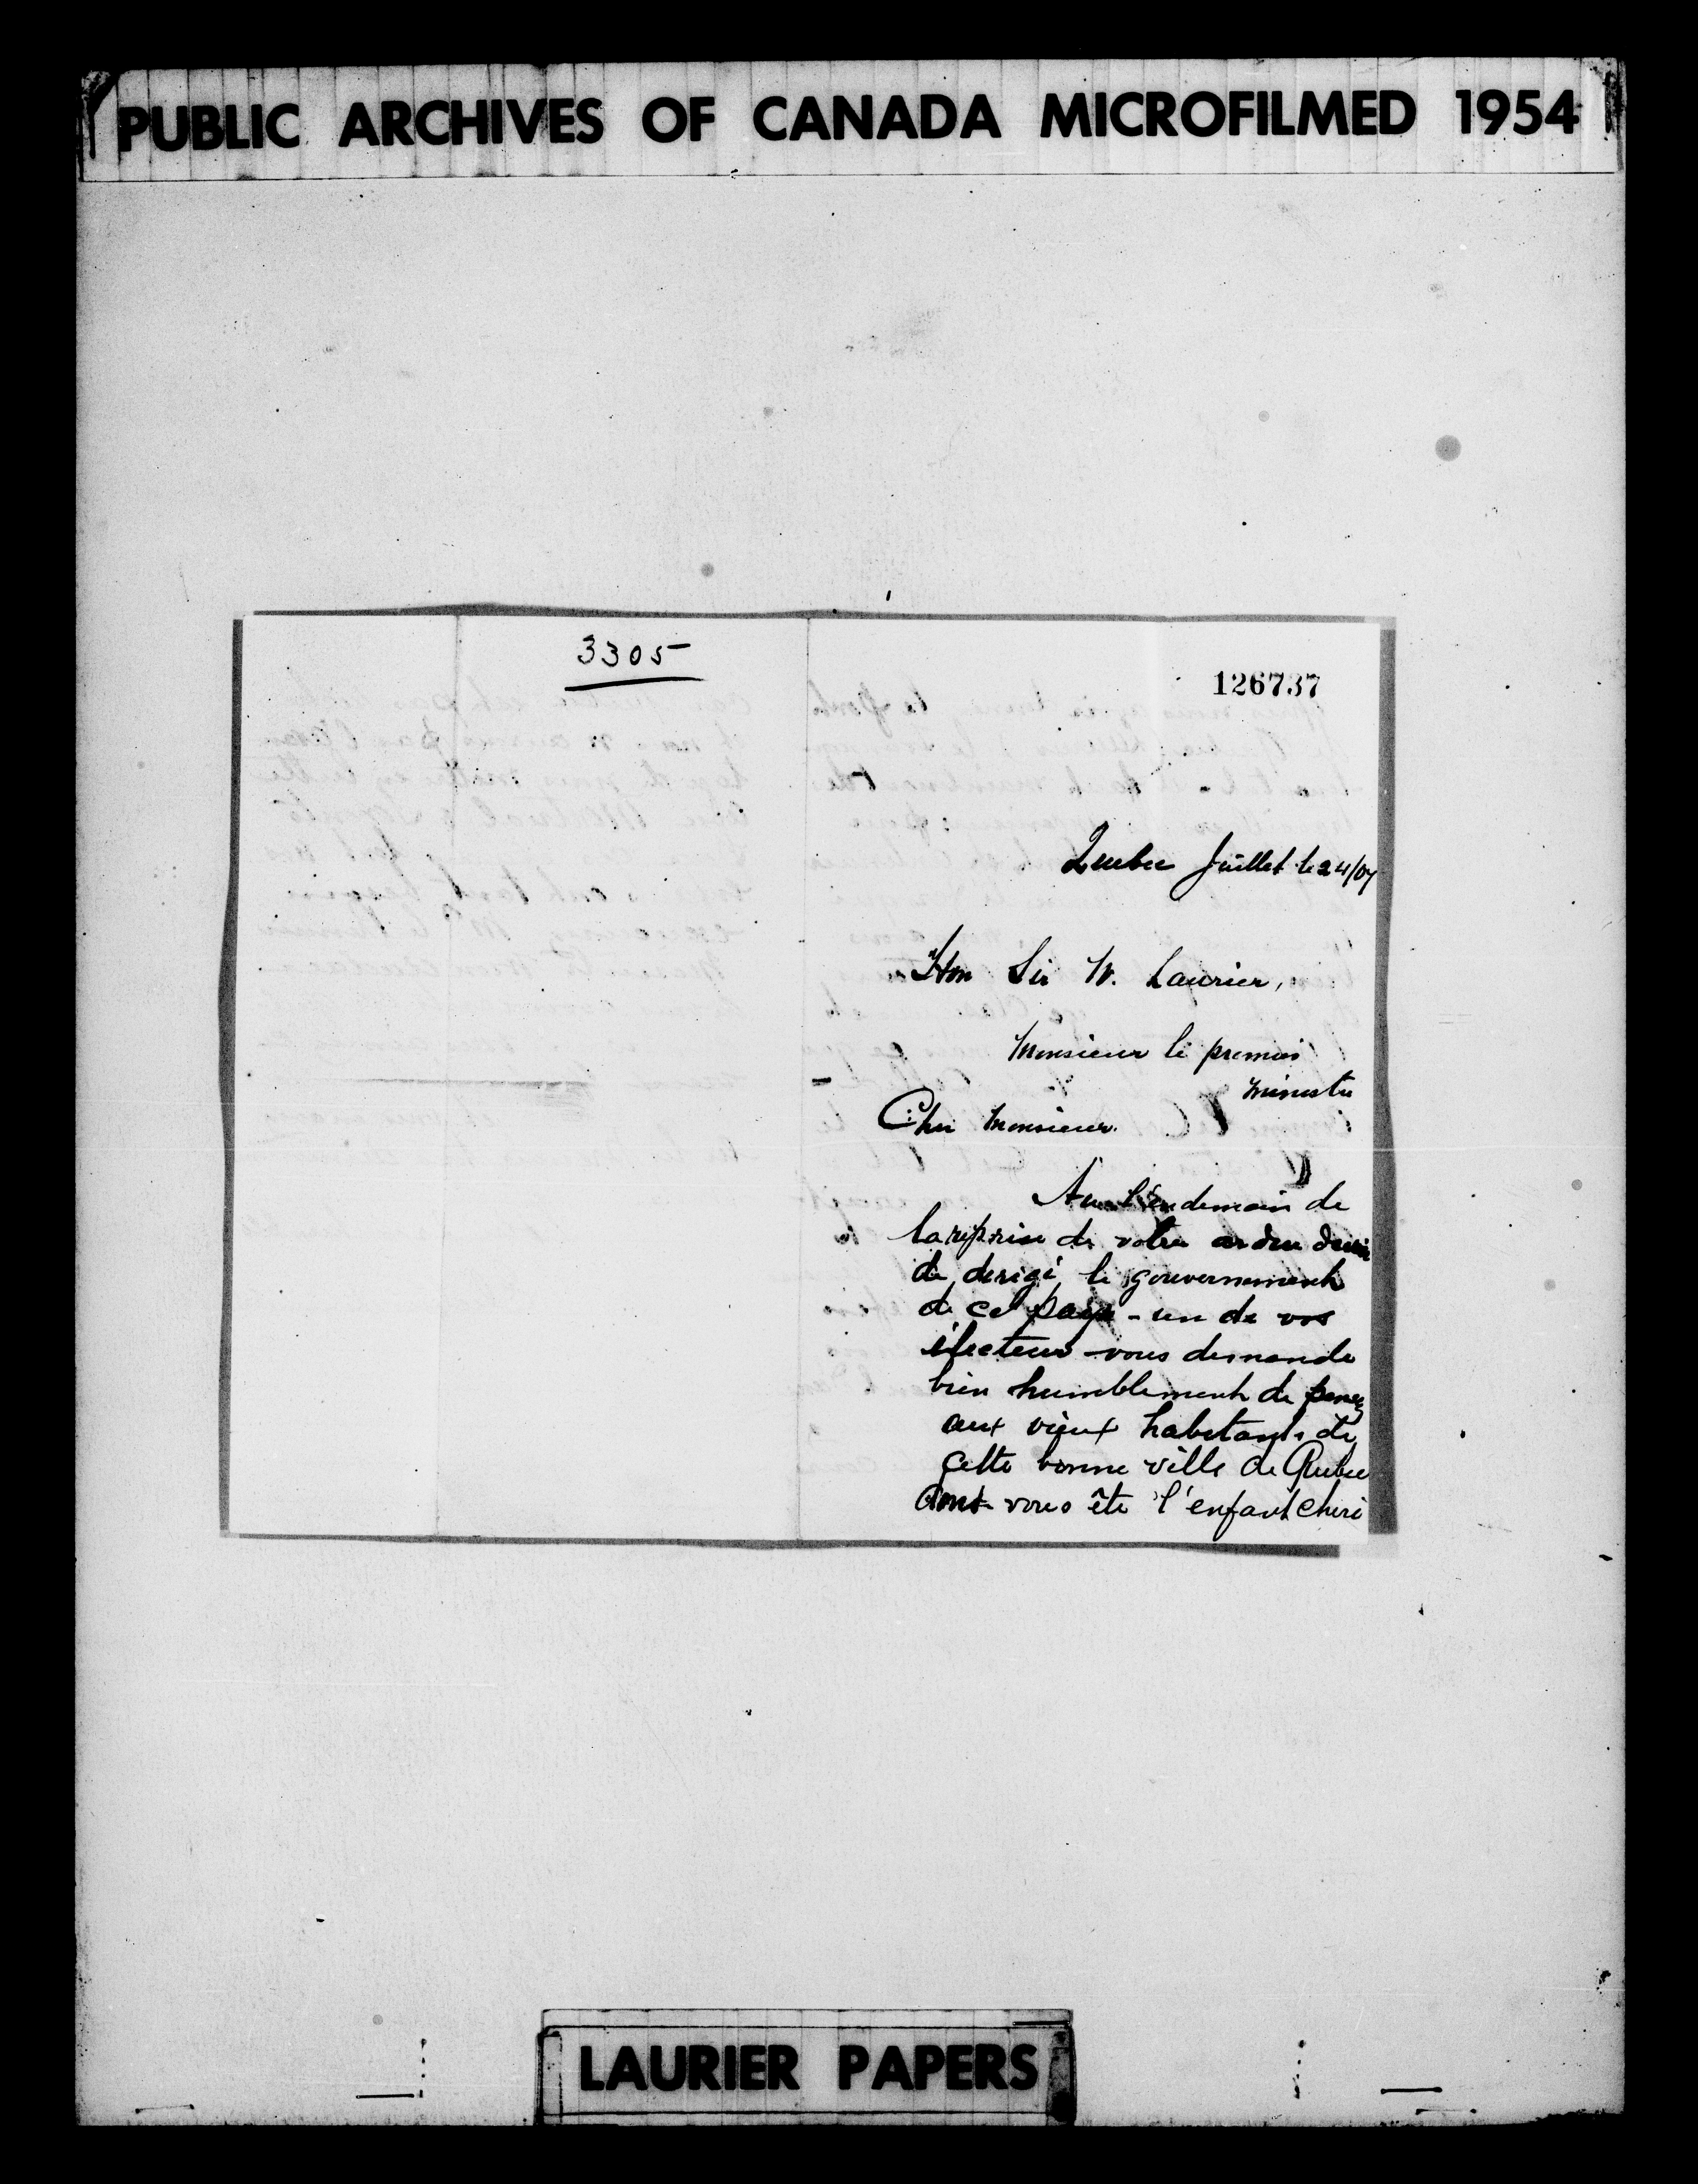 PUBLIC ARCHIVES OF CANADA MICROFILMED 1954
3305
126737
Quebec Juillet le 24/07
Hon Sir W. Laurier,
Monsieur le premier
ministre
Cher Monsieur.
Au l'endemain de
la reprise de votre ardeu
de derigé le gouvernement
de ce pays - un de vos
électeur vous demande
bien humblement de pensez
aux vieux habitants de
cette bonne ville de Quebec
dont vous ête l'enfant cheri
LAURIER PAPERS